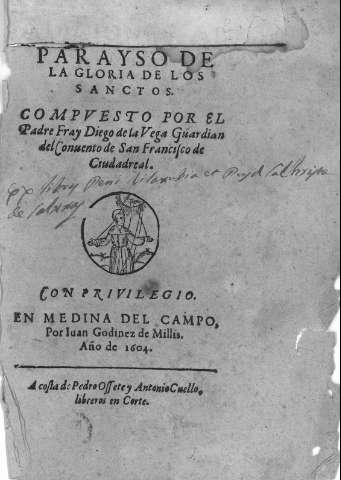 PARAYSO DE
LA GLORIA DE LOS
SANCTOS.
COMPVESTO POR EL
Padre Fray Diego de la Vega Guardian
del Conuento de San Francisco de
Ciudadreal.
ex libry
de
CON PRIVILEGIO.
EN MEDINA DEL CAMPO,
Por Iuan Godinez de Millis.
Año de 1604.
A costa de Pedro Ossete y Antonio Cuello,
libreros en Corte.